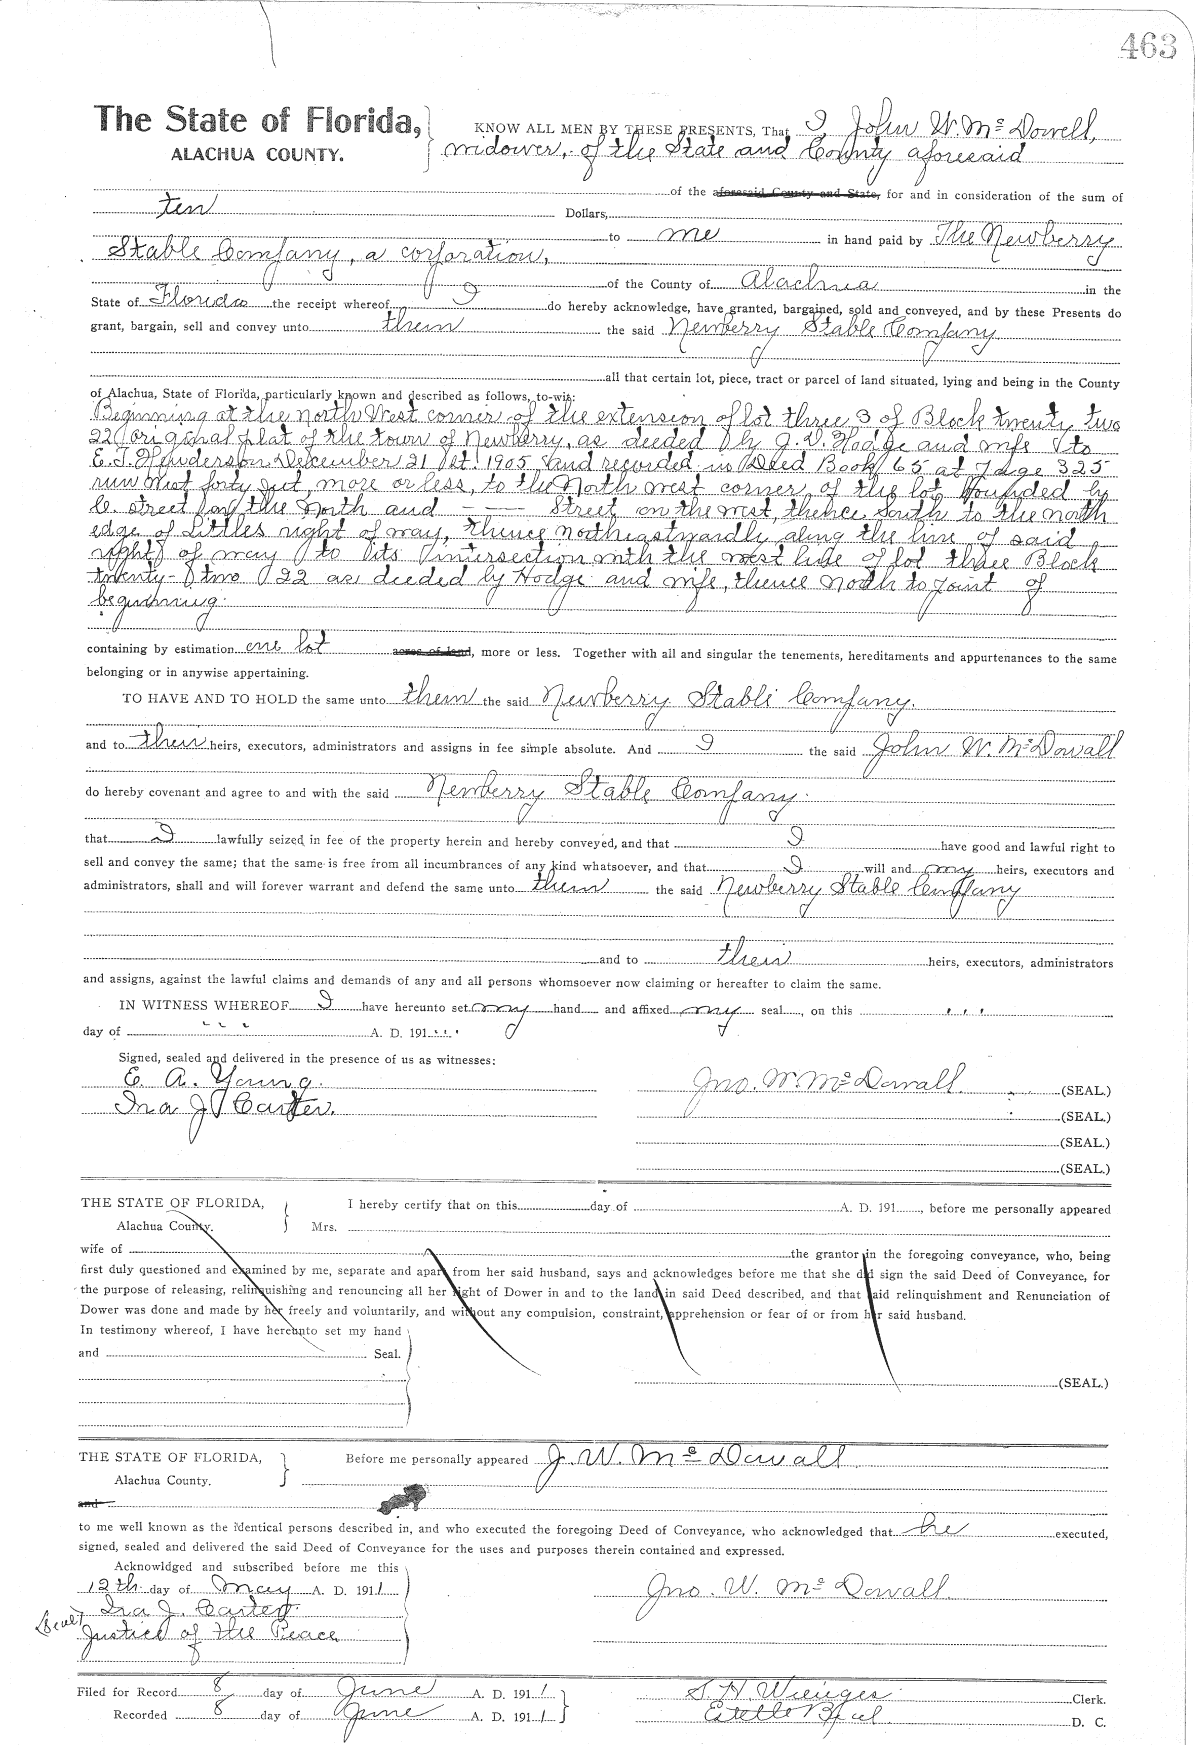 463
The State of Florida,
ALACHUA COUNTY.
KNOW ALL MEN BY THESE PRESENTS, That I John W. McDowell,
widower, of the State and County aforesaid
of the aforesaid County and State, for and in consideration of the sum of
ten Dollars,
to me in hand paid by The Newberry
Stable Company, a corporation,
of the County of Alachua in the
State of Florida the receipt whereof I do hereby acknowledge, have granted, bargained, sold and conveyed, and by these Presents do
grant, bargain, sell and convey unto them the said Newberry Stable Company
all that certain lot, piece, tract or parcel of land situated, lying and being in the County
of Alachua, State of Florida, particularly known and described as follows, to-wit:
Beginning at the North West corner of the extension of lot three 3 of Block twenty two
22 original plat of the town of Newberry, as deeded by J. D. Hodge and wife to
E. T. Henderson December 21 1905 and recorded in Deed Book 65 at page 325
run West forty feet, more or less, to the North west corner of the lot bounded by
C. street on the North and - -- Street on the west, thence South to the north
edge of Littles right of way, thence northeastwardly along the line of said
right of way to its intersection with the west line of lot three Block
twenty-two 22 as deeded by Hodge and wife, thence North to point of
beginning.
containing by estimation one lot acres of land, more or less. Together with all and singular the tenements, hereditaments and appurtenances to the same
belonging or in anywise appertaining.
TO HAVE AND TO HOLD the same unto them the said Newberry Stable Company.
and to their heirs, executors, administrators and assigns in fee simple absolute. And I the said John W. McDowall
do hereby covenant and agree to and with the said Newberry Stable Company.
that I lawfully seized in fee of the property herein and hereby conveyed, and that I have good and lawful right to
sell and convey the same; that the same is free from all incumbrances of any kind whatsoever, and that I will and my heirs, executors and
administrators, shall and will forever warrant and defend the same unto them the said Newberry Stable Company
and to their heirs, executors, administrators
and assigns, against the lawful claims and demands of any and all persons whomsoever now claiming or hereafter to claim the same.
IN WITNESS WHEREOF I have hereunto set my hand and affixed my seal, on this
day of A. D. 191
Signed, sealed and delivered in the presence of us as witnesses:
E. A. Young.
Ira J. Carter.
Jno. W. McDowall (SEAL.)
(SEAL.)
(SEAL.)
(SEAL.)
THE STATE OF FLORIDA,
Alachua County.
I hereby certify that on this day of A. D. 191, before me personally appeared
Mrs.
wife of the grantor in the foregoing conveyance, who, being
first duly questioned and examined by me, separate and apart from her said husband, says and acknowledges before me that she did sign the said Deed of Conveyance, for
the purpose of releasing, relinquishing and renouncing all her right of Dower in and to the land in said Deed described, and that said relinquishment and Renunciation of
Dower was done and made by her freely and voluntarily, and without any compulsion, constraint, apprehension or fear of or from her said husband.
In testimony whereof, I have hereunto set my hand
and Seal.
(SEAL.)
THE STATE OF FLORIDA,
Alachua County.
Before me personally appeared J. W. McDowall
and
to me well known as the identical persons described in, and who executed the foregoing Deed of Conveyance, who acknowledged that he executed,
signed, sealed and delivered the said Deed of Conveyance for the uses and purposes therein contained and expressed.
Acknowldged and subscribed before me this
12th day of May A. D. 1911
(Seal) Ira J. Carter
Justice of the Peace
Jno. W. McDowall
Filed for Record 8 day of June A. D. 1911
S. H. Wienges Clerk.
Recorded 8 day of June A. D. 1911
Estelle D. C.